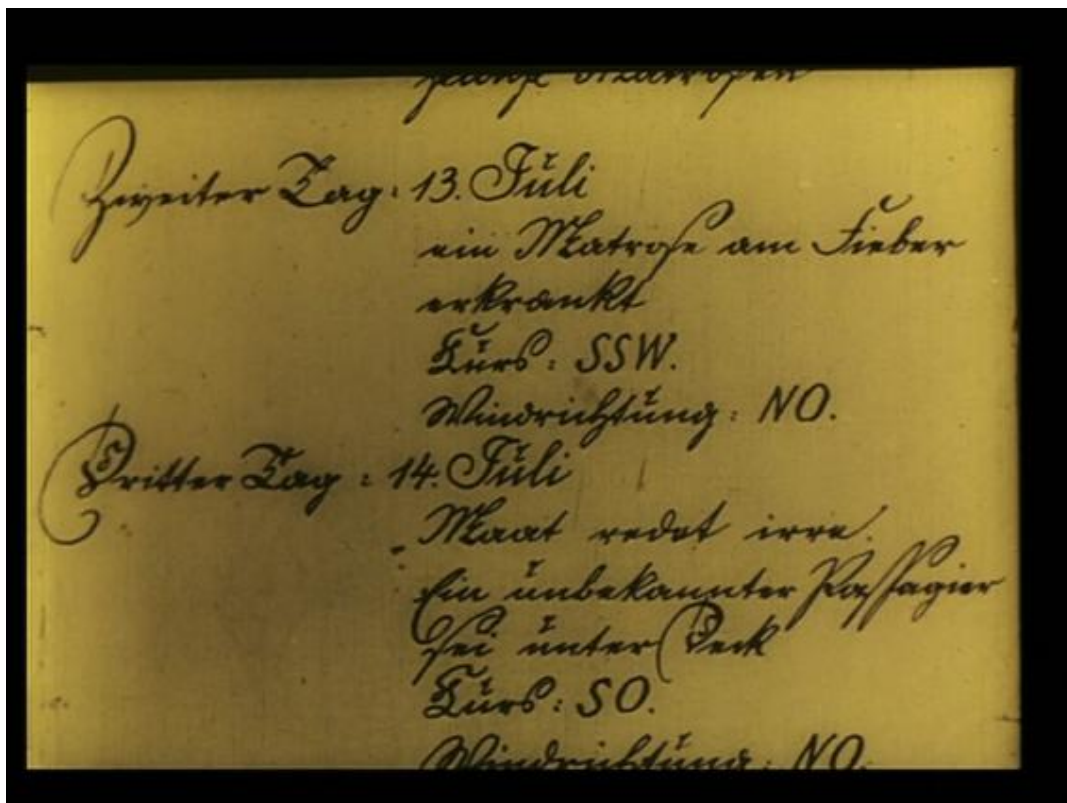 Matrosen
Zweiter Tag: 13. Juli
ein Matrose am Fieber
erkrankt
Kurs: SSW.
Windrichtung: NO.
Dritter Tag: 14. Juli
Maat redet irre.
Ein unbekannter Passagier
sei unter Deck
Kurs: SO.
Windrichtung: NO.